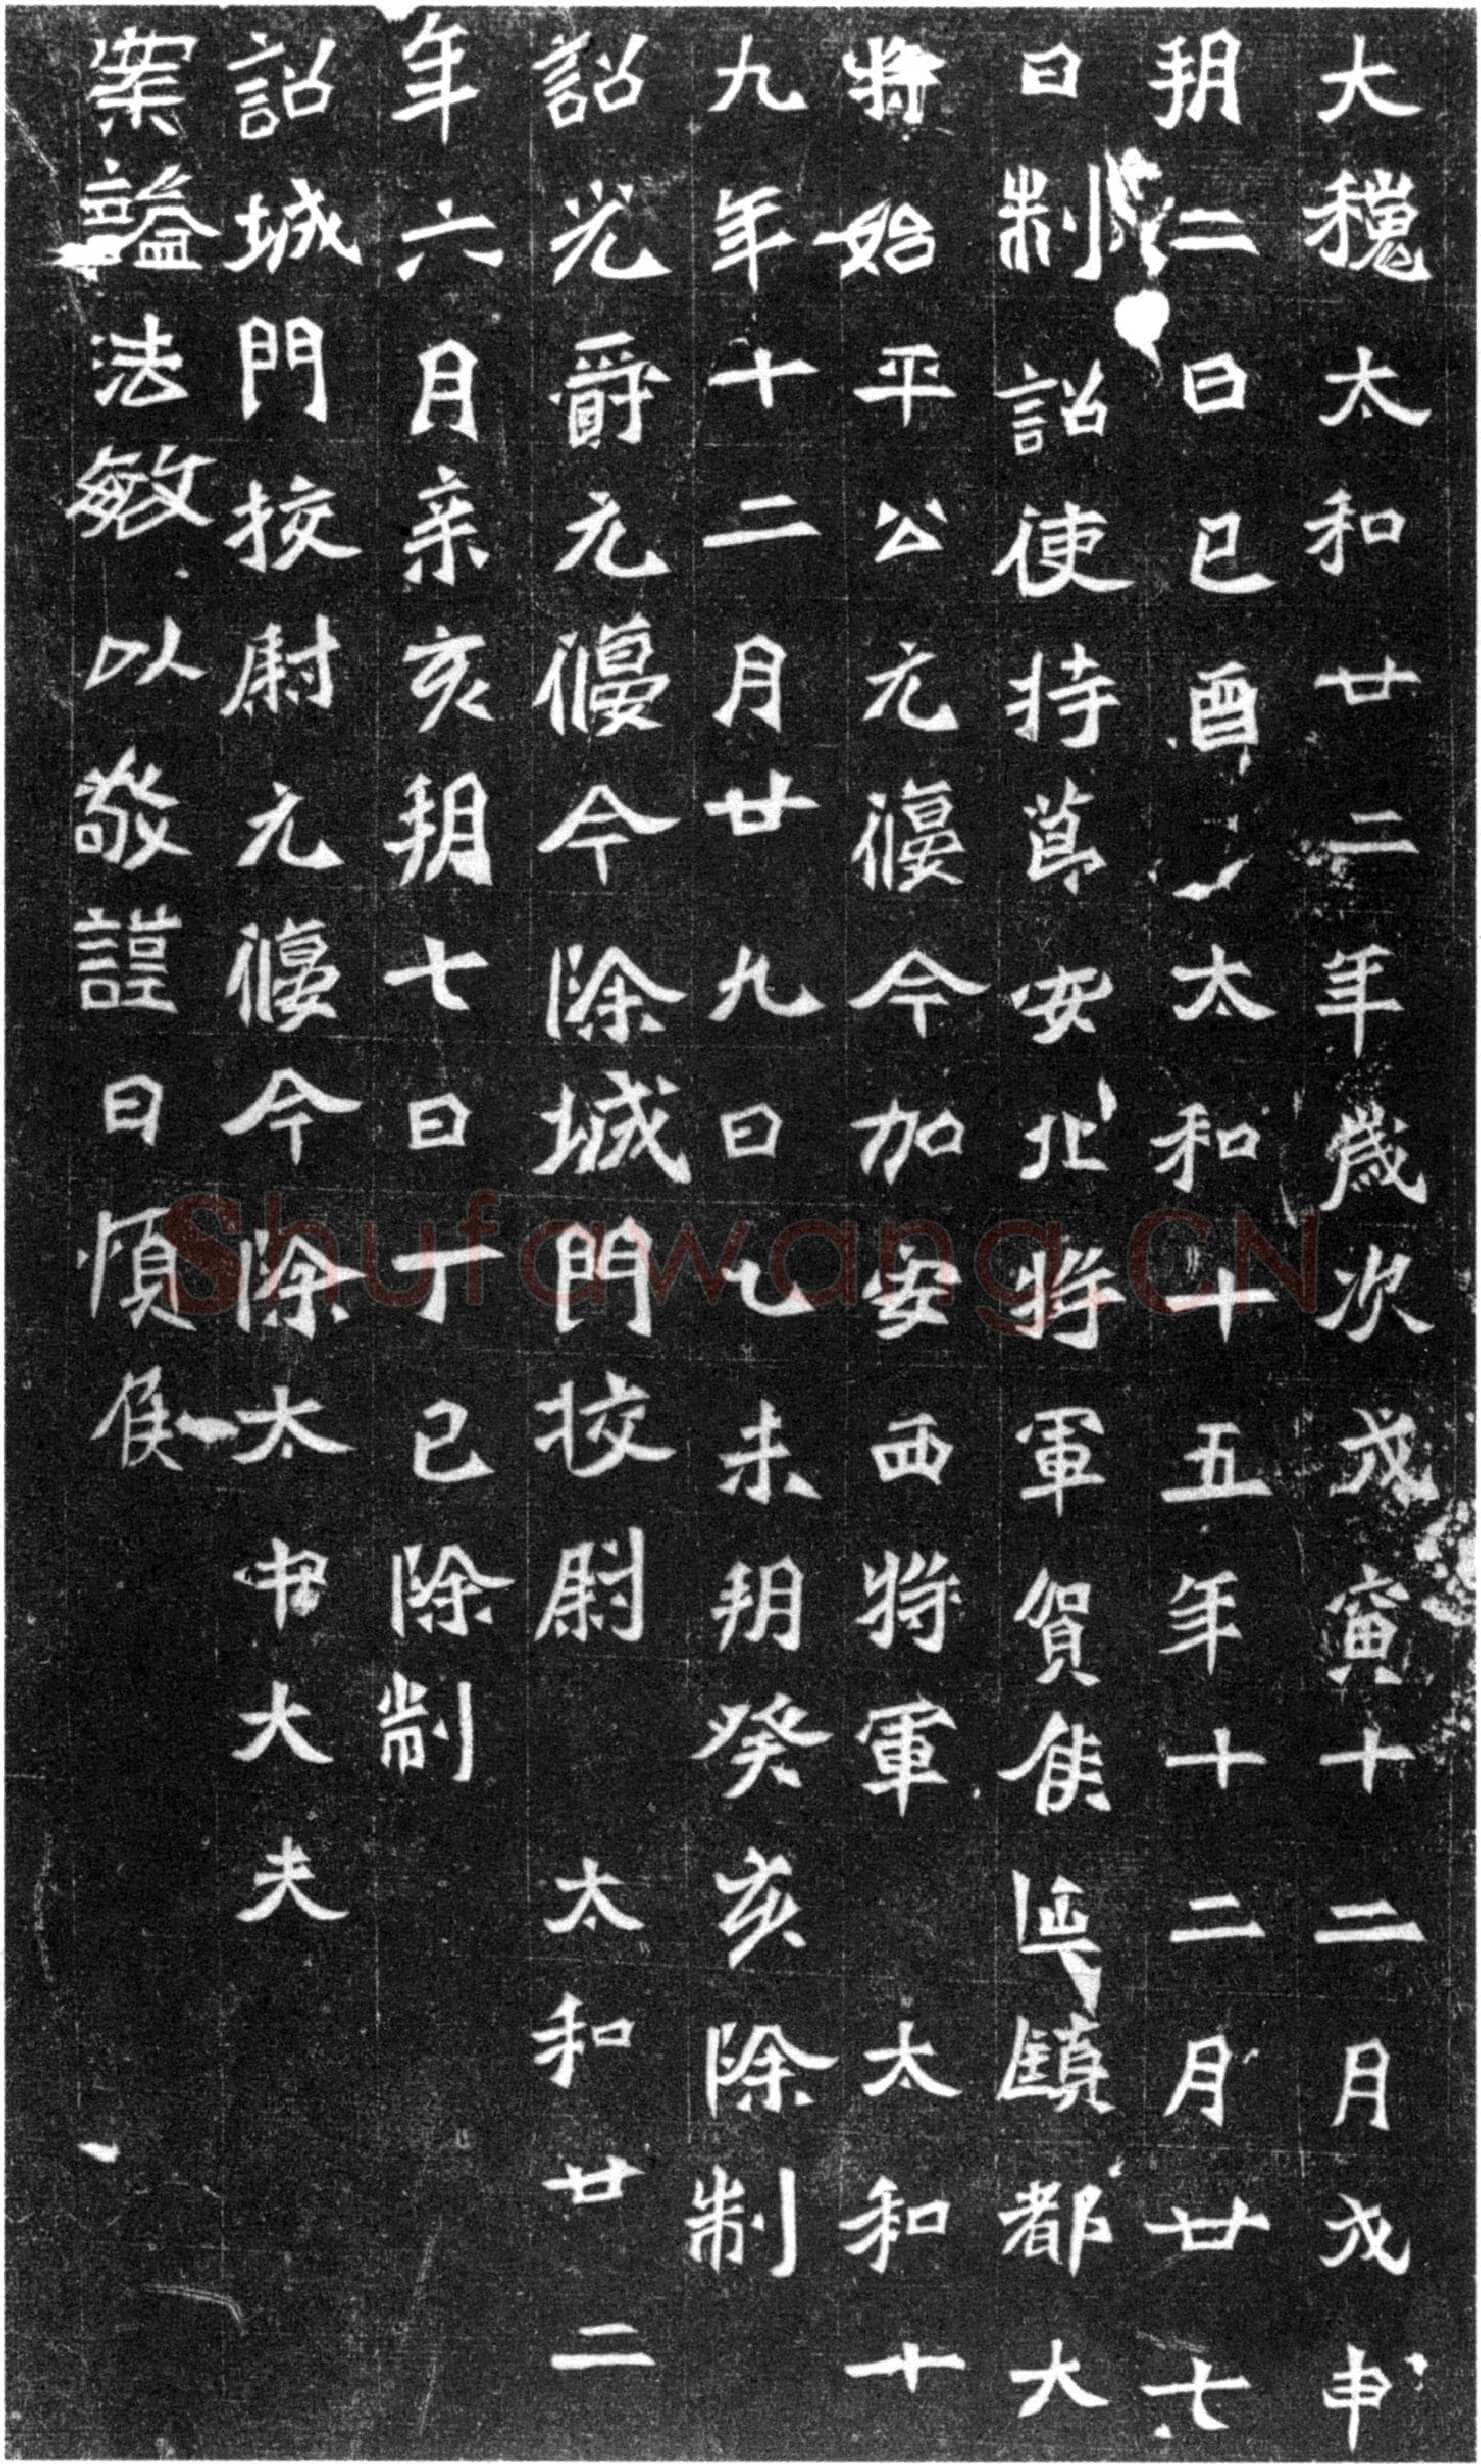 大魏太和廿二年歲次戊寅十二月戊申
朔二日己酉太和十五年十二月廿七
日制詔使持節安北將軍賀侯延鎮都大
將始平公元偃今加安西將軍太和十
九年十二月廿九日乙未朔癸亥除制
詔光爵元偃今除城門挍尉太和廿二
年六月辛亥朔七日丁巳除制
詔城門挍尉元偃今除太中大夫
案謚法敏以敬謹曰頃侯
Shufawang.CN